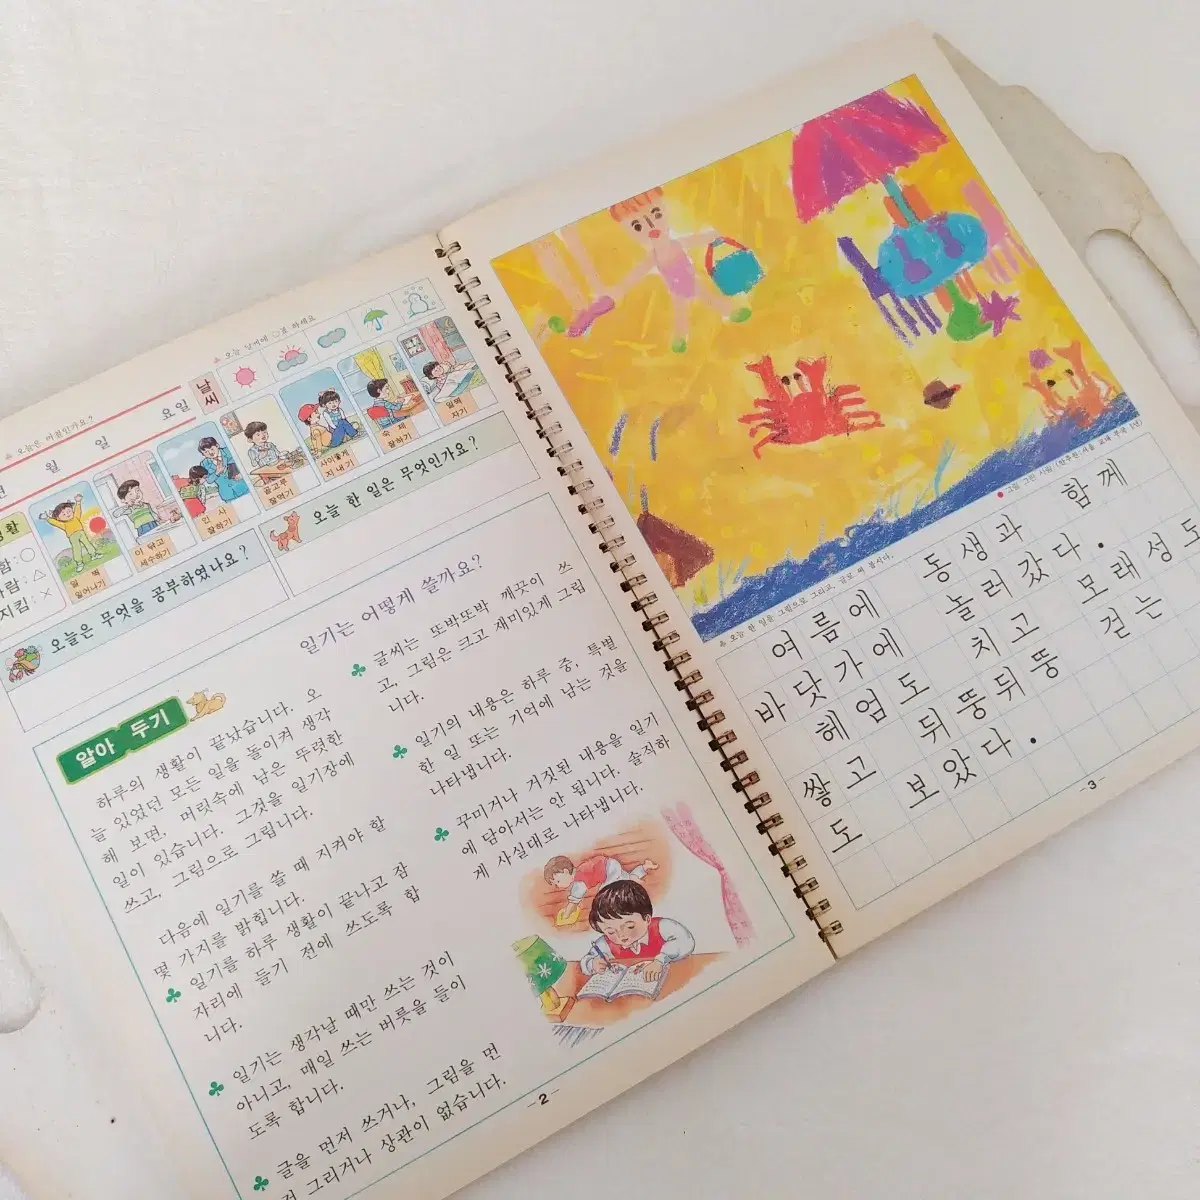 오늘은 며칠인가요?
오늘 날씨에 ○표 하세요
월 일 요일 날씨
일찍 일어나기
이 닦고 세수하기
인사 잘하기
골고루 잘먹기
사이좋게 지내기
숙제 잘하기
일찍 자기
오늘은 무엇을 공부하였나요?
오늘 한 일은 무엇인가요?
알아 두기
일기는 어떻게 쓸까요?
하루의 생활이 끝났습니다. 오
늘 있었던 모든 일을 돌이켜 생각
해 보면, 머릿속에 남은 뚜렷한
일이 있습니다. 그것을 일기장에
쓰고, 그림으로 그립니다.
다음에 일기를 쓸 때 지켜야 할
몇 가지를 밝힙니다.
♣ 일기를 하루 생활이 끝나고 잠
자리에 들기 전에 쓰도록 합
니다.
♣ 일기는 생각날 때만 쓰는 것이
아니고, 매일 쓰는 버릇을 들이
도록 합니다.
♣ 글을 먼저 쓰거나, 그림을 먼
저 그리거나 상관이 없습니다.
♣ 글씨는 또박또박 깨끗이 쓰
고, 그림은 크고 재미있게 그립
니다.
♣ 일기의 내용은 하루 중, 특별
한 일 또는 기억에 남는 것을
나타냅니다.
♣ 꾸미거나 거짓된 내용을 일기
에 담아서는 안 됩니다. 솔직하
게 사실대로 나타냅니다.
-2-
오늘 한 일을 그림으로 그리고, 글로 써 봅시다.
여름에 동생과 함께
바닷가에 놀러갔다.
헤엄도 치고 모래성도
쌓고 뒤뚱뒤뚱 걷는
도 보았다.
-3-